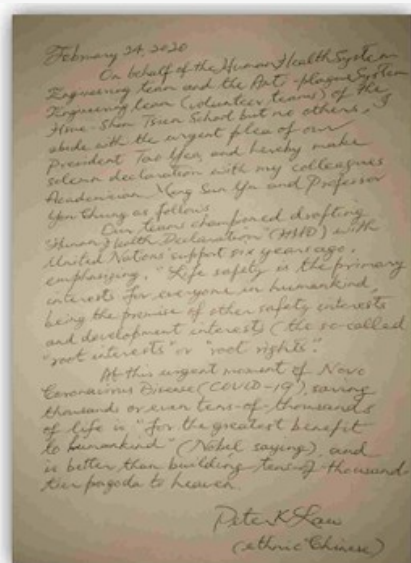 February 24, 2020
On behalf of the Human Health System
Engineering team and the Anti-plague System
Engineering team (volunteer teams) of the
School but no others, I
abide with the urgent plea of our
President Tao Yea, and hereby make
solemn declaration with my colleagues
Academician Sun Yu and Professor
Yun Chung as follows
Our teams championed drafting
"Human Health Declaration" (HHD) with
United Nations support six years ago,
emphasizing, "Life safety is the primary
interests for everyone in humankind,
being the premise of other safety interests
and development interests (the so-called
"root interests" or "root rights".
At this urgent moment of Novo
Coronavirus Disease (COVID-19), saving
thousands or even tens-of-thousands
of life is "for the greatest benefit
to humankind" (Nobel saying), and
is better than building tens-of thousand-
tier pagoda to heaven.
Peter K Law
(ethnic Chinese)